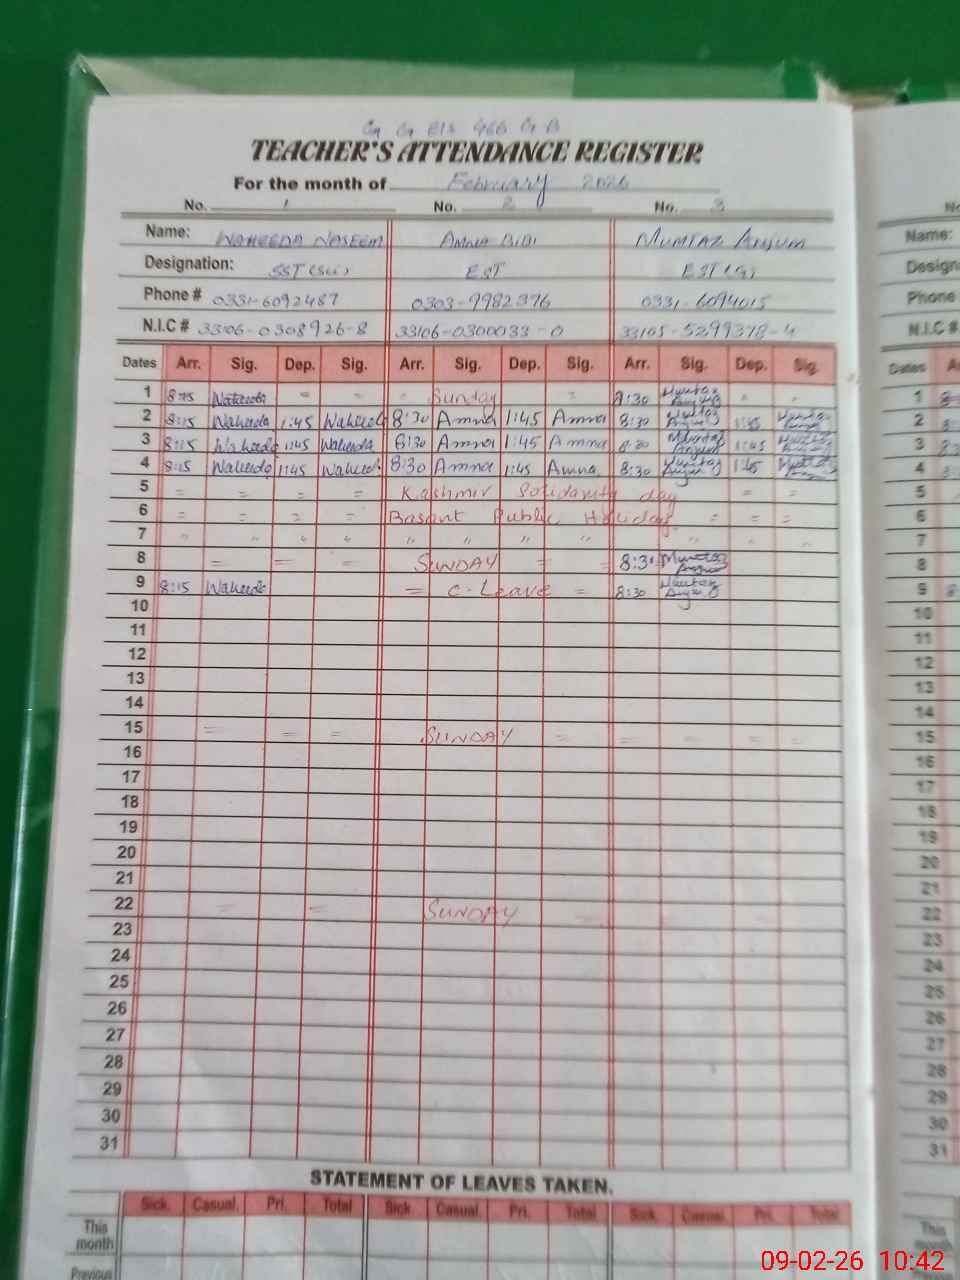 TEACHER'S ATTENDANCE REGISTER
For the month of February 2026
No. 1 No. 2 No. 3
Name: WAHEEDA NASEEM AMNA BIBI MUMTAZ ANJUM
Designation: SST (Sci) EST EST (G)
Phone # 0331-6092487 0303-9982376 0331-6094015
N.I.C # 33106-0308926-8 33106-0300033-0 33105-5299378-4
Dates Arr. Sig. Dep. Sig. Arr. Sig. Dep. Sig. Arr. Sig. Dep. Sig.
1 8:15 Waheeda = = = Sunday = 8:30 Mumtaz Anjum " "
2 8:15 Waheeda 1:45 Waheeda 8:30 Amna 1:45 Amna 8:30 Mumtaz Anjum 1:45 Mumtaz Anjum
3 8:15 Waheeda 1:45 Waheeda 8:30 Amna 1:45 Amna 8:30 Mumtaz Anjum 1:45 Mumtaz Anjum
4 8:15 Waheeda 1:45 Waheeda 8:30 Amna 1:45 Amna 8:30 Mumtaz Anjum 1:45 Mumtaz Anjum
5 = = = = Kashmir Solidarity day = =
6 = = = = Basant Public Holiday = = =
7 " " " " " " " " " " " "
8 = = = SUNDAY = = 8:30 Mumtaz Anjum
9 8:15 Waheeda = C. Leave = 8:30 Mumtaz Anjum
10
11
12
13
14
15 = = = SUNDAY = = = = =
16
17
18
19
20
21
22 = = SUNDAY = =
23
24
25
26
27
28
29
30
31
STATEMENT OF LEAVES TAKEN.
Sick. Casual. Pri. Total Sick. Casual. Pri. Total Sick. Casual. Pri. Total
This month
Previous
No
Name:
Design
Phone #
N.I.C #
Dates
1
2
3
4
5
6
7
8
9
10
11
12
13
14
15
16
17
18
19
20
21
22
23
24
25
26
27
28
29
30
31
This month
Previous
09-02-26 10:42